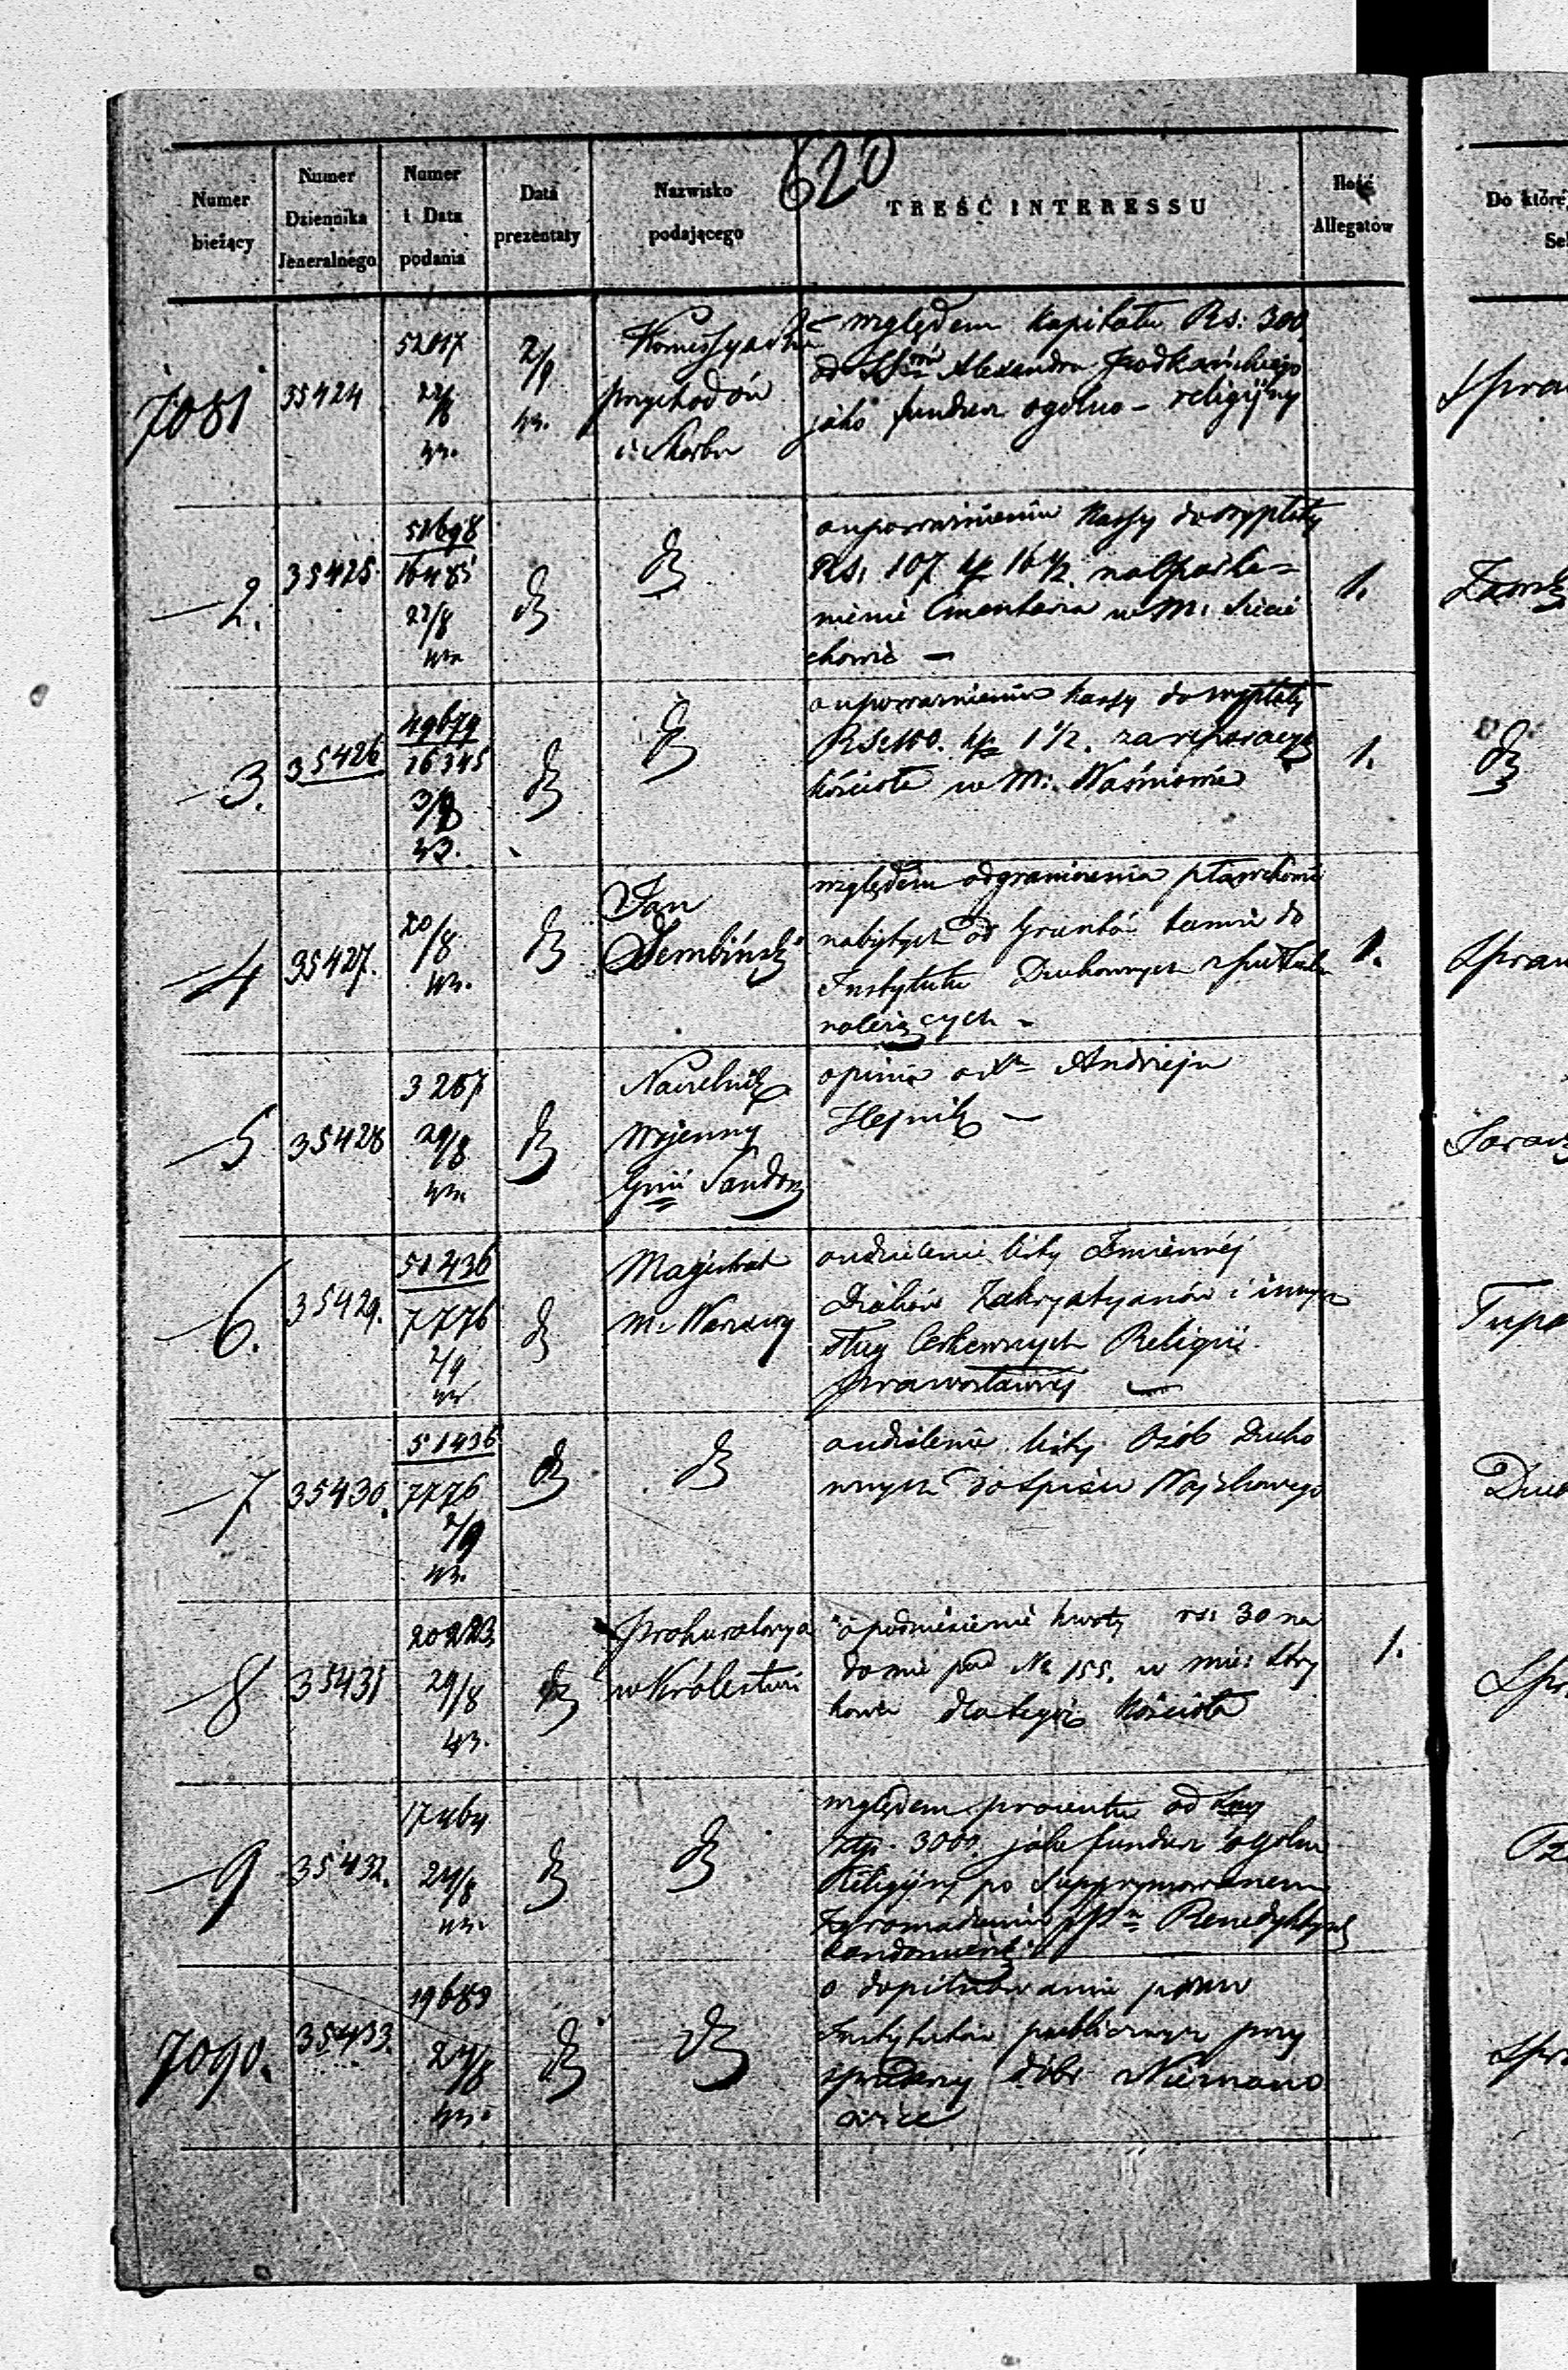 620
Numer bieżący
Numer Dziennika Jeneralnego
Numer i Data podania
Data prezentaty
Nazwisko podającego
TREŚĆ INTERESSU
Ilość Allegatów
Do które
Se
7081 35424 52017 22/8 43. 2/9 43. Kommissya
Przychodów
i Skarbu
względem Kapitału Rs: 300,
od Alexandra
jako fundusz ogólno-religijny
Spra
2. 35425 51698 16485 22/8
o upoważnienie Kassy do wypłaty
Rs: 107 kp 16 1/2.
nienie Cmentarza w M: Siecie
chowie — 1.
3. 35426 49679 16345 3/8 43.
o upoważnienie Kassy do wypłaty
Rs: 100. kp 1 1/2. za reperacyę
kościoła w M: Waśniowie 1.
4 35427. 20/8 43. Jan
Dembiński
względem odgraniczenia
nabytych od Gruntów tamże do
Instytutu Duchownych
należących - 1.
Spraw
5 35428 3267 29/8 43. Naczelnik
Wojenny
Gnii Sandom
opinia o Xn Andrzeju
Hejnik —
6. 35429. 51436 7776 2/9 43 Magistrat
M. Warszawy
o udzielenie listy Imiennéj
Diaków Zakrystyanów i innych
sług Cerkiewnych Religii
Prawosławnéj —
7 35430. 51436 7776 2/9 43.
o udzielenie listy Osób Ducho
wnych do spisu Wojskowego
Duc
8 35431 20223 29/8 43. Prokuratorya
w Królestwie
o podniesienie kwoty rs: 30 na
domie pod No 155. w mie: Stry
kowie dla tegoż Kościoła 1.
Spr
9 35432. 17464 24/8 43.
względem procentu od Sumy
Złp. 3000. jako fundusz ogólno
Religijny po Supprymowanem
Zgromadzeniu PPn Benedyktynek
Sandomierz
7090. 35433. 19689 24/8 43.
o dopilnowanie praw
Instytutów publicznych przy
sprzedaży dóbr
Spr